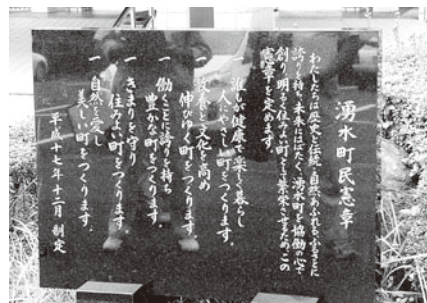 湧水町民憲章
わたしたちは歴史と伝統、自然あふれるふるさとに
誇りを持ち、未来にはばたく、湧水町を協働の心で
創り、明るく住みよい町として繁栄させるため、この
憲章を定めます。
一 誰もが健康で楽しく暮らし
人にやさしい町をつくります。
一 教養と文化を高め
伸びゆく町をつくります。
一 働くことに誇りを持ち
豊かな町をつくります。
一 きまりを守り
住みよい町をつくります。
一 自然を愛し
美しい町をつくります。
平成十七年十二月 制定